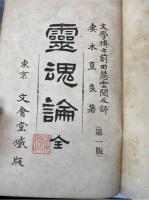 文學博士前田慧雲閲及評
妻木直良著
(第一版)
靈魂論 全
東京 文會堂藏版